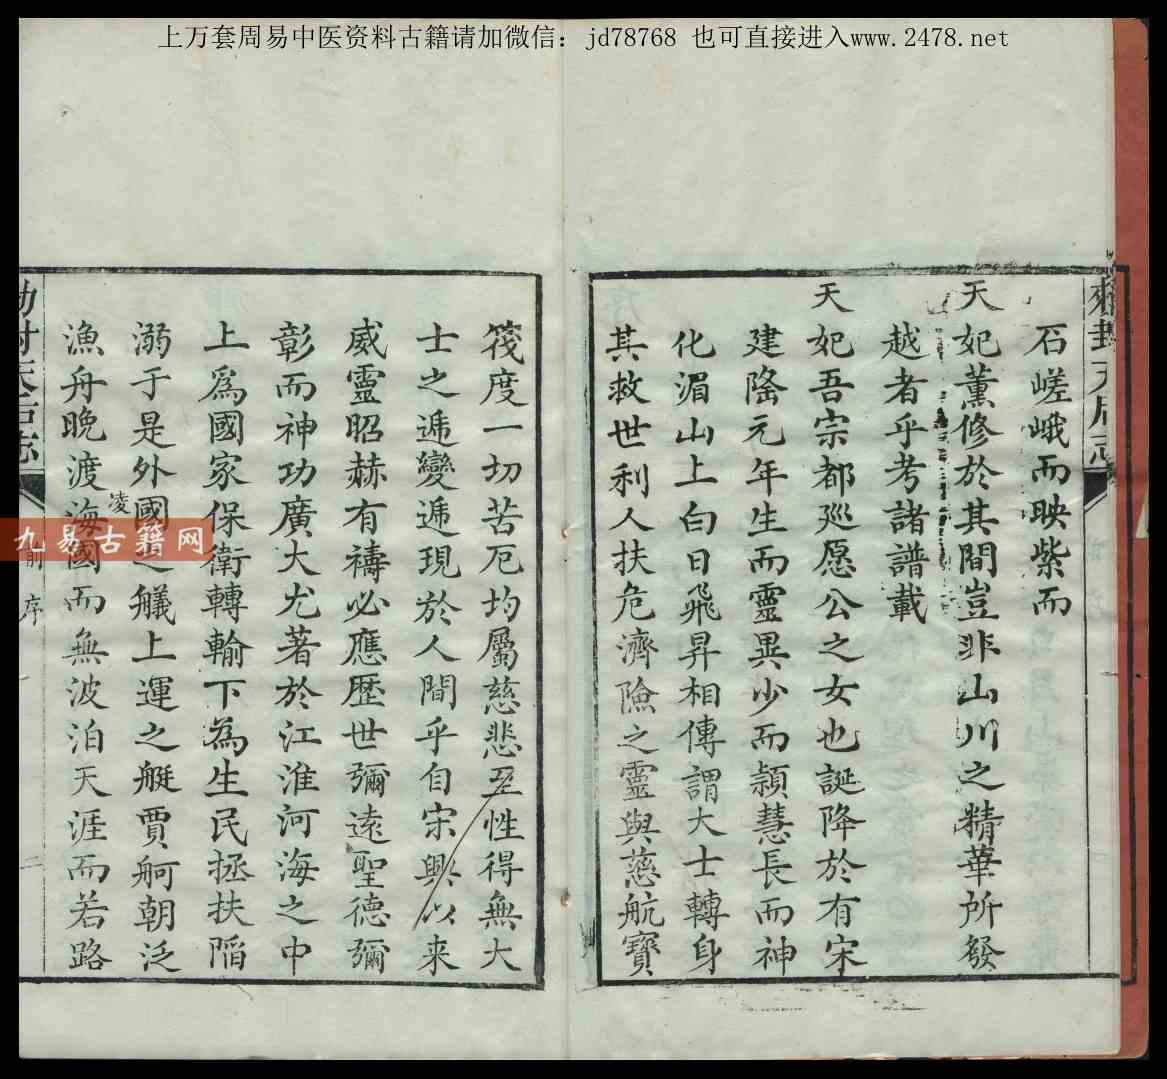 上万套周易中医资料古籍请加微信：jd78768 也可直接进入www.2478.net
石嵯峨而映紫而
天妃薰修於其間豈非山川之精華所發
越者乎考諸譜載
天妃吾宗都巡愿公之女也誕降於有宋
建隆元年生而靈異少而穎慧長而神
化湄山上白日飛昇相傳謂大士轉身
其救世利人扶危濟險之靈與慈航寶
筏度一切苦厄均屬慈悲至性得無大
士之遞變遞現於人間乎自宋興以来
威靈昭赫有禱必應歷世彌遠聖德彌
彰而神功廣大尤著於江淮河海之中
上爲國家保衛轉輸下為生民拯扶陷
溺于是外國之艤上運之艇賈舸朝泛
凌
漁舟晚渡海國而無波泊天涯而若路
勅封天后志
前序
二
九易古籍网